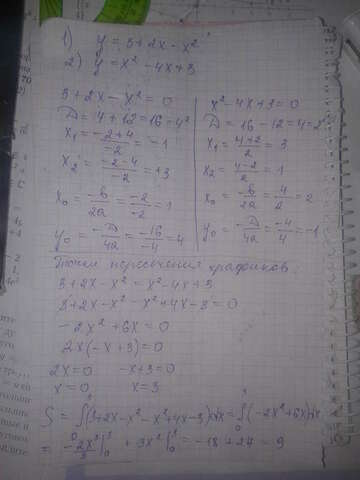 1) y = 3+2x-x²
2) y = x² -4x+3
3+2x-x²=0
D = 4+12=16=4²
x₁ = (-2+4)/(-2) = -1
x₂ = (-2-4)/(-2) = +3
x₀ = -b/2a = -2/-2 = 1
y₀ = -D/4a = -16/-4 = 4
x²-4x+3=0
D = 16-12=4=2²
x₁ = (4+2)/2 = 3
x₂ = (4-2)/2 = 1
x₀ = -b/2a = 4/2 = 2
y₀ = -D/4a = -4/4 = -1
Точки пересечения графиков
3+2x-x² = x²-4x+3
3+2x-x²-x²+4x-3=0
-2x²+6x=0
2x(-x+3)=0
2x=0 -x+3=0
x=0 x=3
S = ∫₀³(3+2x-x²-x²+4x-3)dx = ∫₀³(-2x²+6x)dx
= -2x³/3 |₀³ + 3x²|₀³ = -18+27=9